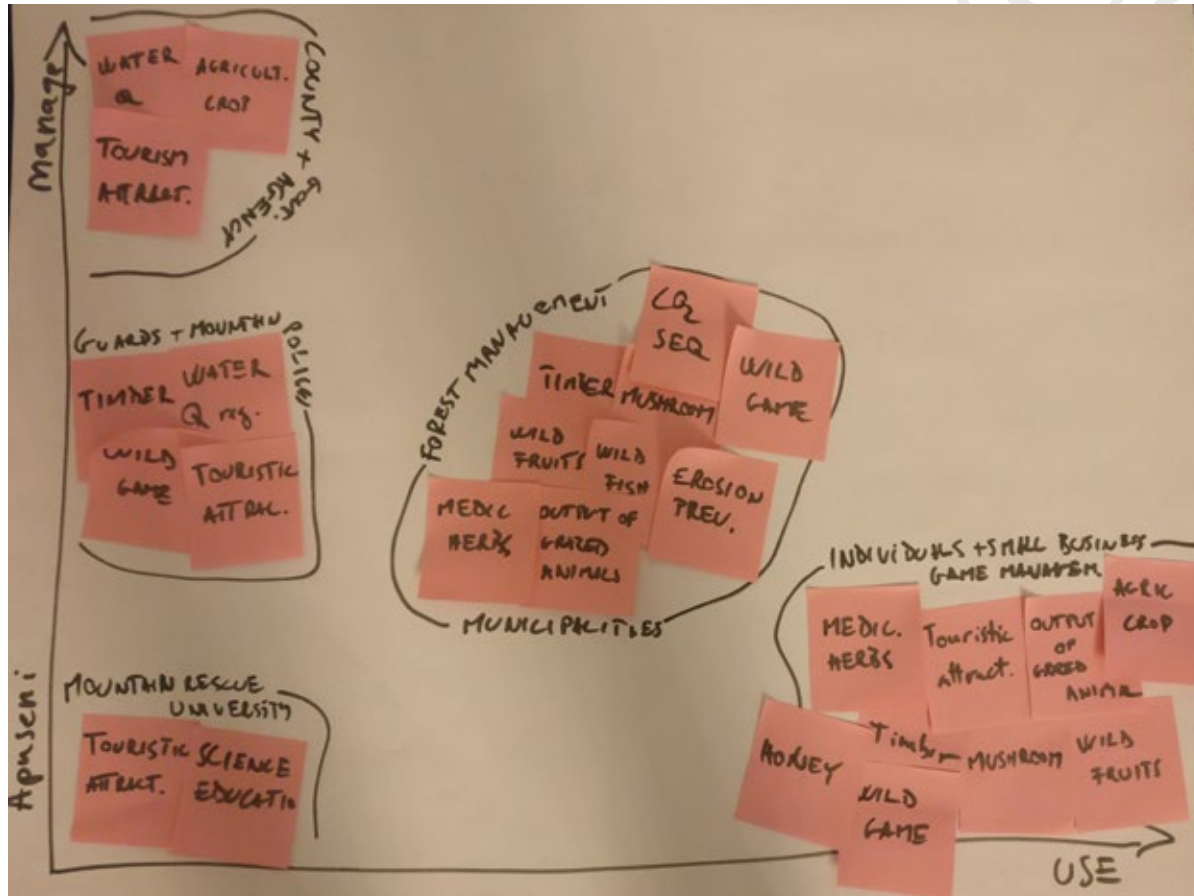 Manage
WATER
Q
AGRICULT.
CROP
TOURISM
ATTRACT.
COUNTY + Gov.
AGENCY
GUARDS + MOUNTAIN
POLICE
TIMBER
WATER
Q reg.
WILD
GAME
TOURISTIC
ATTRAC.
FOREST MANAGEMENT
CO2
SEQ
WILD
GAME
TIMBER
MUSHROOM
WILD
FRUITS
WILD
FISH
EROSION
PREV.
MEDIC
HERBS
OUTPUT OF
GRAZED
ANIMALS
MUNICIPALITIES
INDIVIDUALS + SMALL BUSINESS
GAME MANAGEM
MEDIC.
HERBS
Touristic
attract.
OUTPUT
OF
GRAZED
ANIMAL
AGRIC
CROP
HONEY
Timber
MUSHROOM
WILD
FRUITS
WILD
GAME
Apuseni
MOUNTAIN RESCUE
UNIVERSITY
TOURISTIC
ATTRACT.
SCIENCE
EDUCATIO
USE